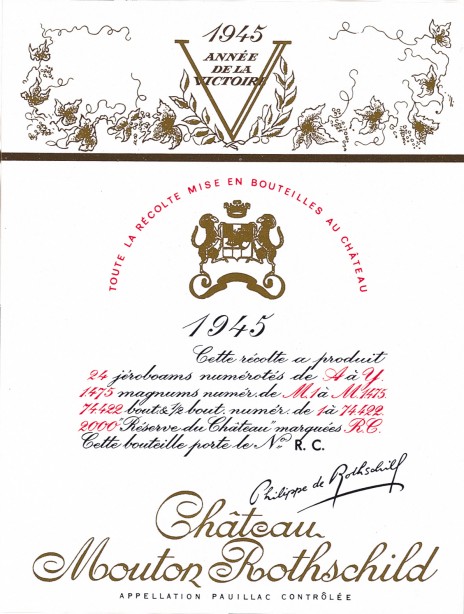 1945
ANNÉE
DE LA
VICTOIRE
TOUTE LA RÉCOLTE MISE EN BOUTEILLES AU CHÂTEAU
1945
Cette récolte a produit
24 jéroboams numérotés de A à Y.
1475 magnums numér. de M.1 à M.1475.
74422 bout. & 1/2 bout. numér. de 1 à 74422.
2000 "Réserve du Château" marquées R.C.
Cette bouteille porte le No R. C.
Philippe de Rothschild
Château
Mouton Rothschild
APPELLATION PAUILLAC CONTRÔLÉE